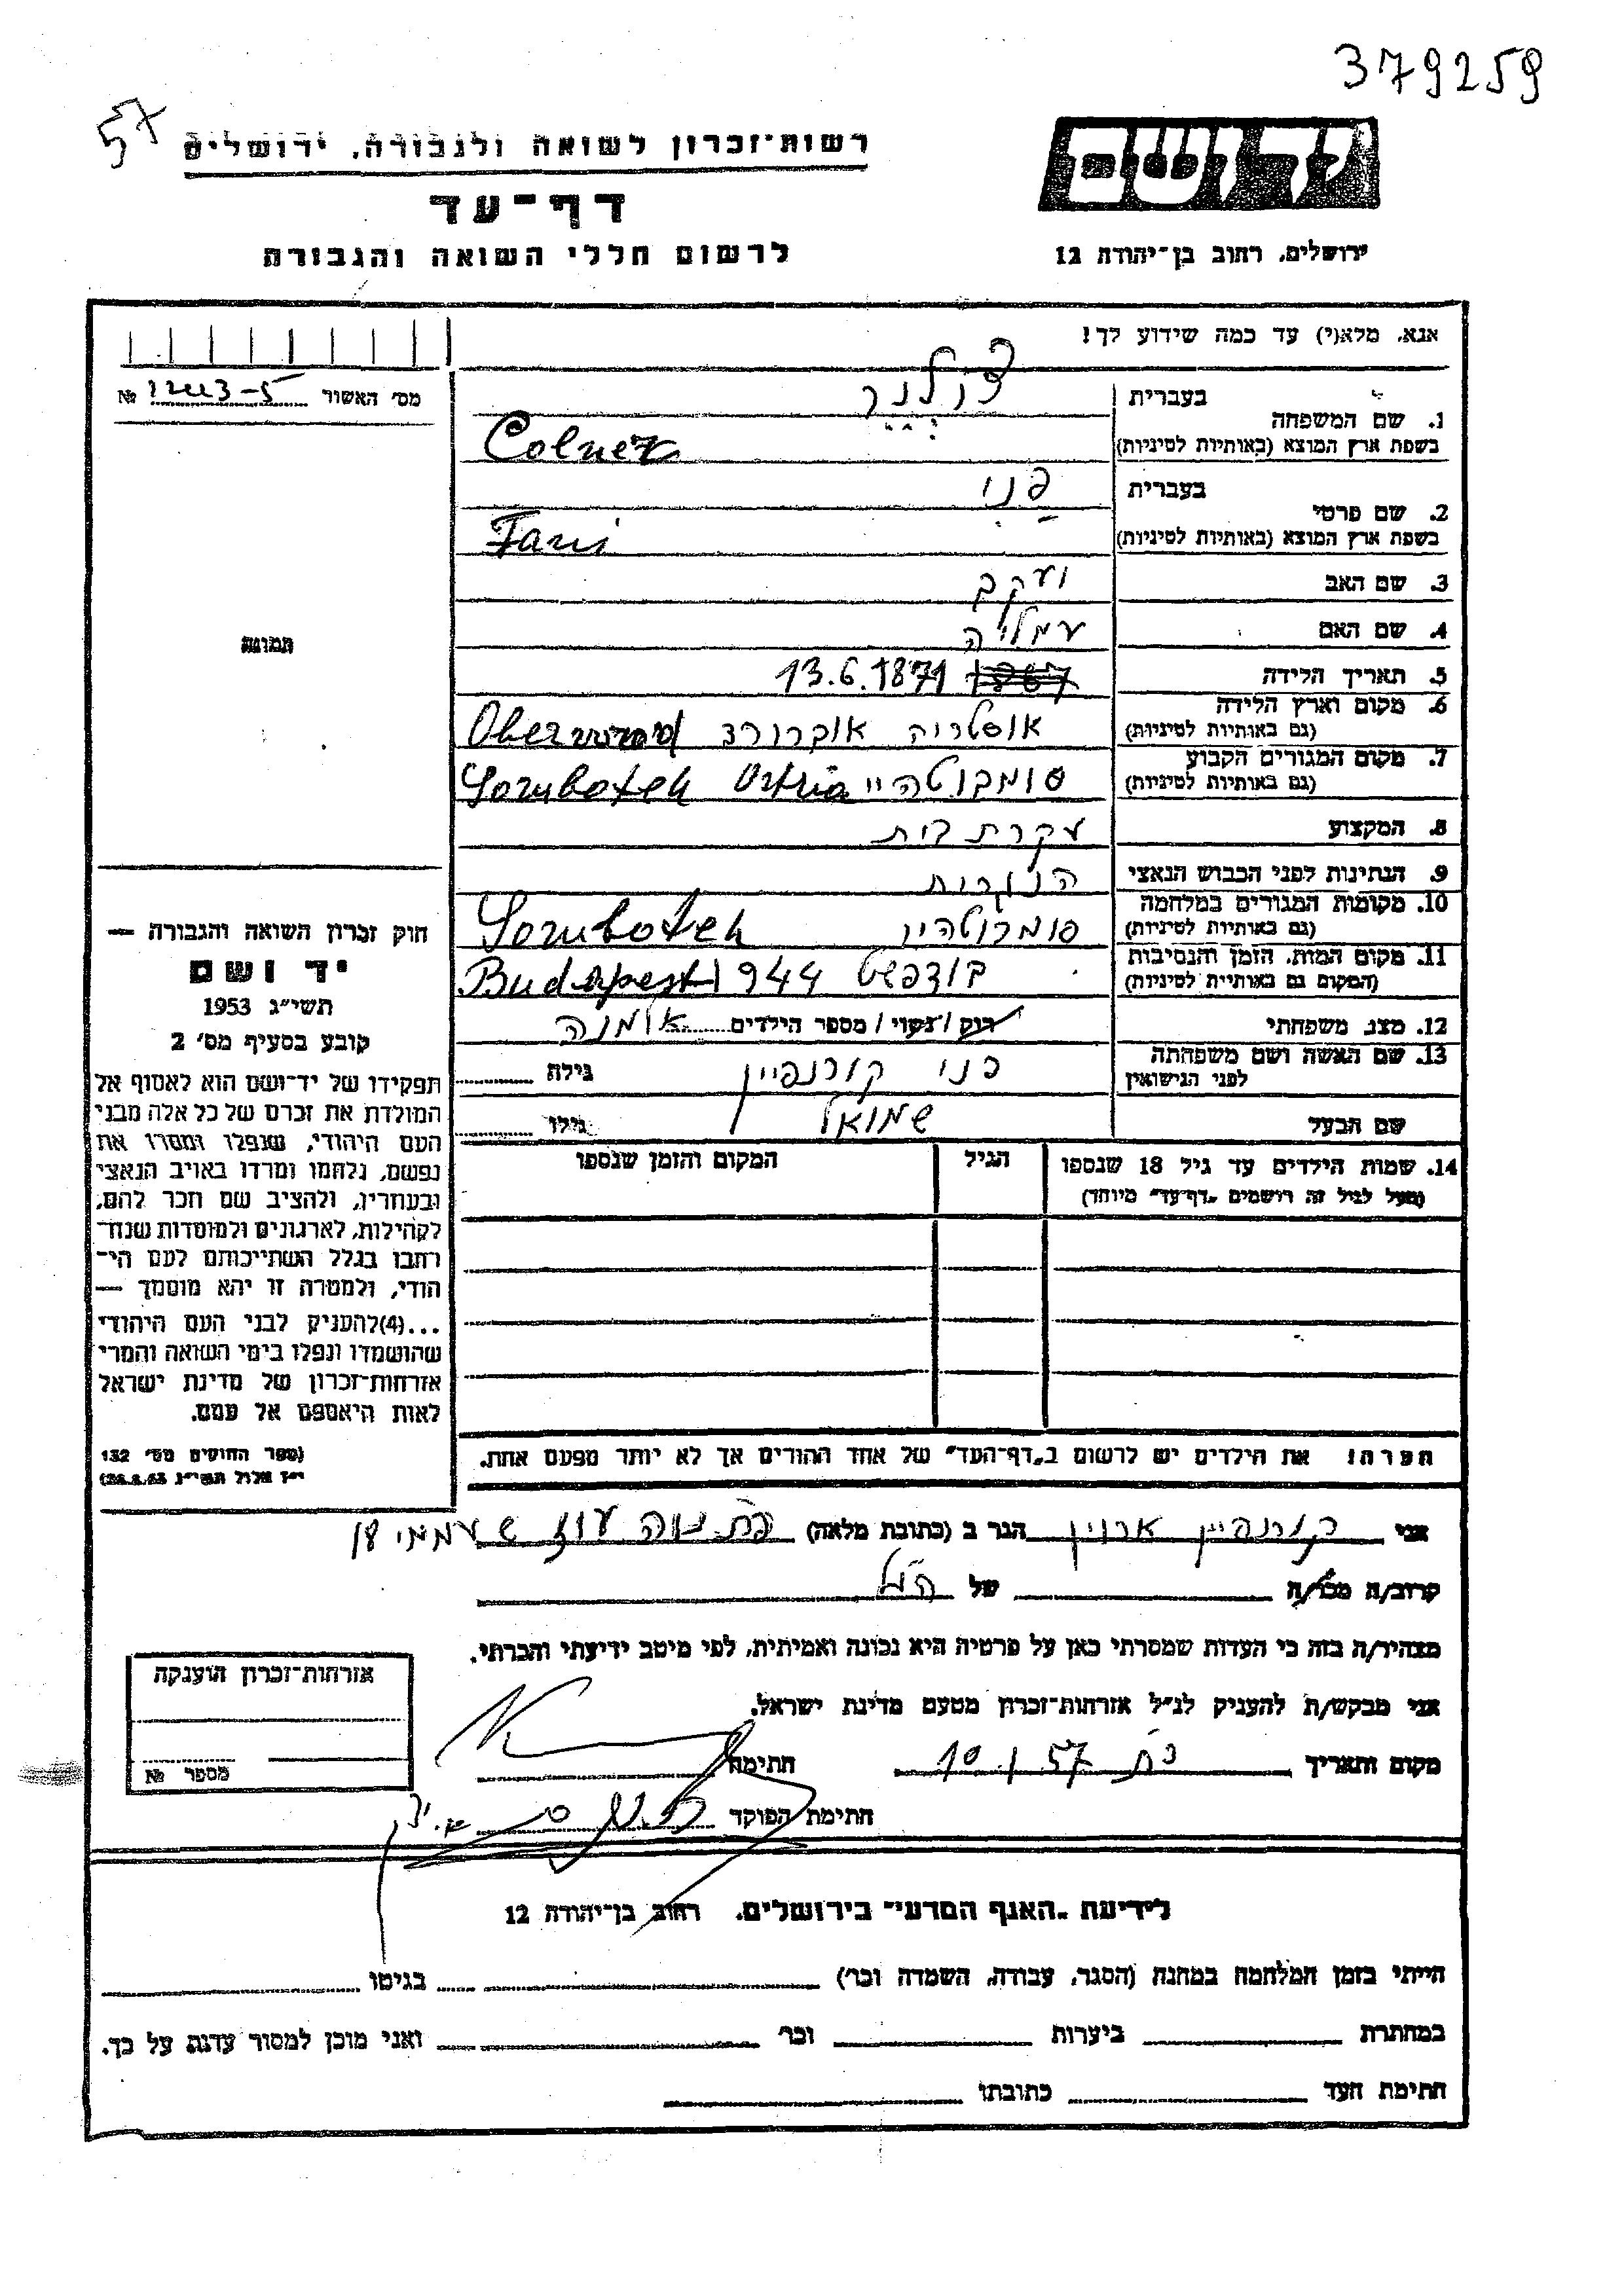 379259
57
רשות-זכרון לשואה ולגבורה, ירושלים
דף-עד
לרשום חללי השואה והגבורה
יד ושם
ירושלים, רחוב בן-יהודה 12
אנא, מלא(י) עד כמה שידוע לך!
מס' האשור № 12113-5
1. שם המשפחה בעברית צולנר
בשפת ארץ המוצא (באותיות לטיניות) Colner
2. שם פרטי בעברית פני
בשפת ארץ המוצא (באותיות לטיניות) Fani
3. שם האב יעקב
4. שם האם עמליה
5. תאריך הלידה 1867 13.6.1871
6. מקום וארץ הלידה (גם באותיות לטיניות) אוסטריה אוברורד Oberward
7. מקום המגורים הקבוע (גם באותיות לטיניות) סומבוטהיי Somboteh Ostria
8. המקצוע עקרת בית
9. הנתינות לפני הכבוש הנאצי הונגרית
10. מקומות המגורים במלחמה (גם באותיות לטיניות) סומבוטהיי Somboteh
11. מקום המות, הזמן והנסיבות (המקום גם באותיית לטיניות) בודפשט 1944 Budapest
12. מצב משפחתי רוק/נשוי/מספר הילדים אלמנה
13. שם האשה ושם משפחתה לפני הנישואין פני קורנפיין גילה
שם הבעל שמואל גילו
14. שמות הילדים עד גיל 18 שנספו הגיל המקום והזמן שנספו
(מעל לגיל זה רושמים "דף-עד" מיוחד)
תמונה
חוק זכרון השואה והגבורה —
יד ושם
תשי"ג 1953
קובע בסעיף מס' 2
תפקידו של יד-ושם הוא לאסוף אל
המולדת את זכרם של כל אלה מבני
העם היהודי, שנפלו ומסרו את
נפשם, נלחמו ומרדו באויב הנאצי
ובעוזריו, ולהציב שם וזכר להם,
לקהילות, לארגונים ולמוסדות שנח-
רבו בגלל השתייכותם לעם הי-
הודי, ולמטרה זו יהא מוסמך —
...(4)להעניק לבני העם היהודי
שהושמדו ונפלו בימי השואה והמרי
אזרחות-זכרון של מדינת ישראל
לאות היאספם אל עמם.
(ספר החוקים מס' 132
י"ז אלול תשי"ג 28.8.53)
הערה! את הילדים יש לרשום ב"דף-העד" של אחד ההורים אך לא יותר מפעם אחת.
אני קורנפיין ארוין הגר ב (כתובת מלאה)
קרוב/ה מכר/ה של הנ"ל
מצהיר/ה בזה כי העדות שמסרתי כאן על פרטיה היא נכונה ואמיתית, לפי מיטב ידיעתי והכרתי.
אני מבקש/ת להעניק לנ"ל אזרחות-זכרון מטעם מדינת ישראל.
מקום ותאריך 10.1.57 חתימה
חתימת הפוקד
אזרחות-זכרון הוענקה
מספר №
לידיעת "האגף המדעי" בירושלים, רחוב בן-יהודה 12
הייתי בזמן המלחמה במחנה (הסגר, עבודה, השמדה וכר') בגיטו
במחתרת ביערות וכר' ואני מוכן למסור עדות על כך.
חתימת העד כתובתו